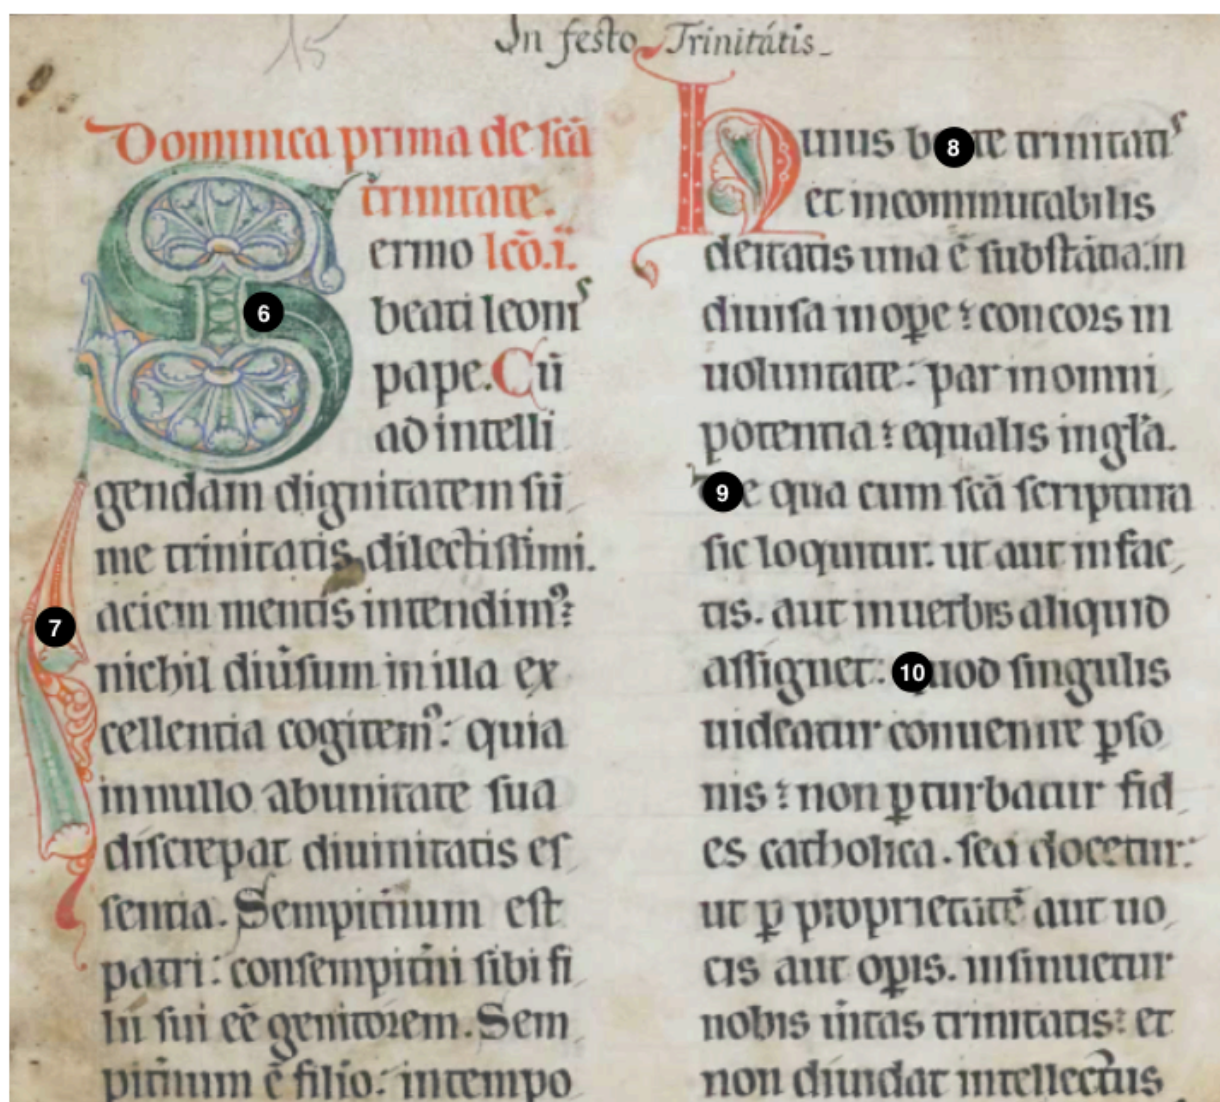 15
In festo Trinitátis
Dominica prima de scā
trinitate.
Sermo lcō.i.
6
beati leonis
pape. Cū
ad intelli
gendam dignitatem sū
me trinitatis dilectissimi.
7
aciem mentis intendimꝰ:
nichil diuisum in illa ex
cellentia cogitemꝰ: quia
in nullo ab unitate sua
discrepat diuinitatis es
sentia. Sempitn̄um est
patri: consempitn̄i sibi fi
lii sui eē genitorem. Sem
pitn̄um ē filio: intempo
Huius 8 trinitatis
et incommutabilis
deitatis una ē substātia: in
diuisa in oꝑe: concors in
uoluntate: par in omni
potentia: equalis in gl̄a.
9 De qua cum scā scriptura
sic loquitur. ut aut in fac
tis. aut in uerbis aliquid
assignet: 10 quod singulis
uideatur conuenire ꝑso
nis: non ꝑturbatur fid
es catholica. sed docetur:
ut ꝑ proprietatē aut uo
cis aut oꝑis. insinuetur
nobis ūitas trinitatis: et
non diuidat intellectus